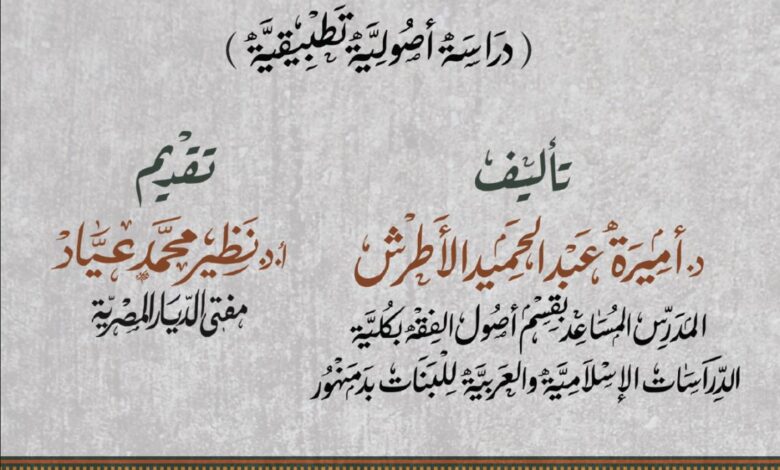 ( دِرَاسَةٌ أُصُولِيَّةٌ تَطْبِيقِيَّةٌ )
تأليف
د. أَمِيرَة عَبْد الحَمِيد الأَطْرَش
المَدَرِّس المُسَاعِد بِقِسْم أُصُول الفِقْه بِكُلِيَّة
الدِّرَاسَات الإِسْلَامِيَّة والعَرَبِيَّة لِلْبَنَات بِدَمَنْهُور
تقديم
أ.د نَظِير مُحَمَّد عَيَّاد
مفتي الدِّيَار المِصْرِيَّة